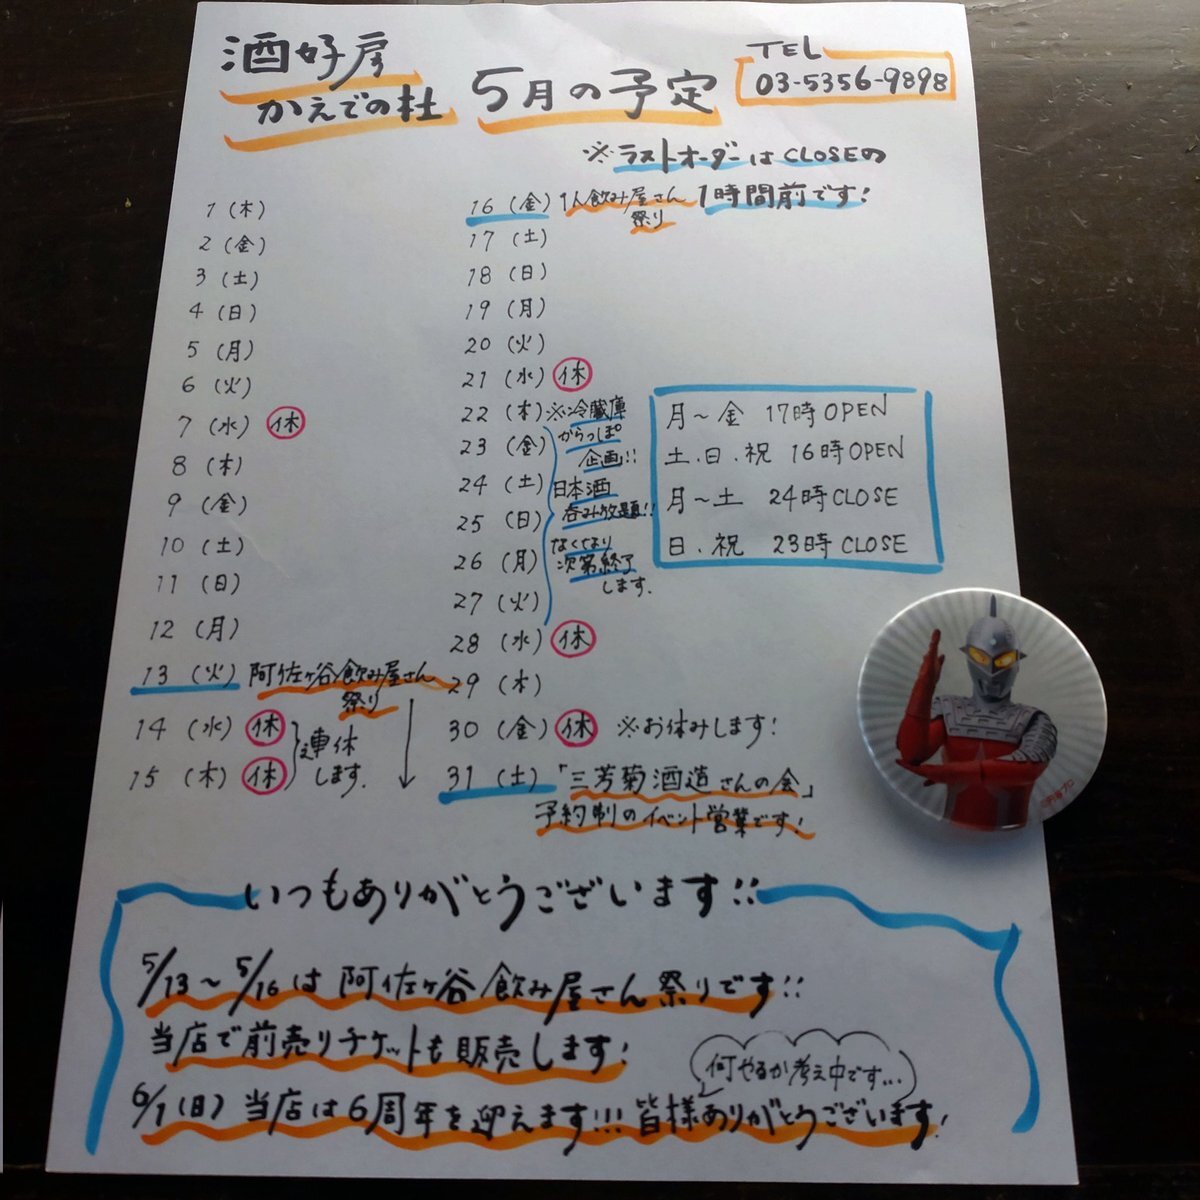 酒好房
かえでの杜
5月の予定
TEL
03-5356-9898
※ラストオーダーはCLOSEの
1時間前です!
1 (木)
2 (金)
3 (土)
4 (日)
5 (月)
6 (火)
7 (水) 休
8 (木)
9 (金)
10 (土)
11 (日)
12 (月)
13 (火) 阿佐ヶ谷飲み屋さん
祭り
14 (水) 休
15 (木) 休
連休
します.
16 (金) 飲み屋さん
祭り
17 (土)
18 (日)
19 (月)
20 (火)
21 (水) 休
22 (木) ※冷蔵庫
23 (金) からっぽ
企画!!
24 (土) 日本酒
25 (日) 呑み放題!!
26 (月) なくなり
次第終了
27 (火) します.
28 (水) 休
29 (木)
30 (金) 休 ※お休みします!
31 (土) 「三芳菊酒造さんの会」
予約制のイベント営業です!
月~金 17時OPEN
土.日.祝 16時OPEN
月~土 24時CLOSE
日.祝 23時CLOSE
いつもありがとうございます!!
5/13~5/16は阿佐ヶ谷飲み屋さん祭りです!!
当店で前売りチケットも販売します!
何やるか考え中です...
6/1(日)当店は6周年を迎えます!!!皆様ありがとうございます!